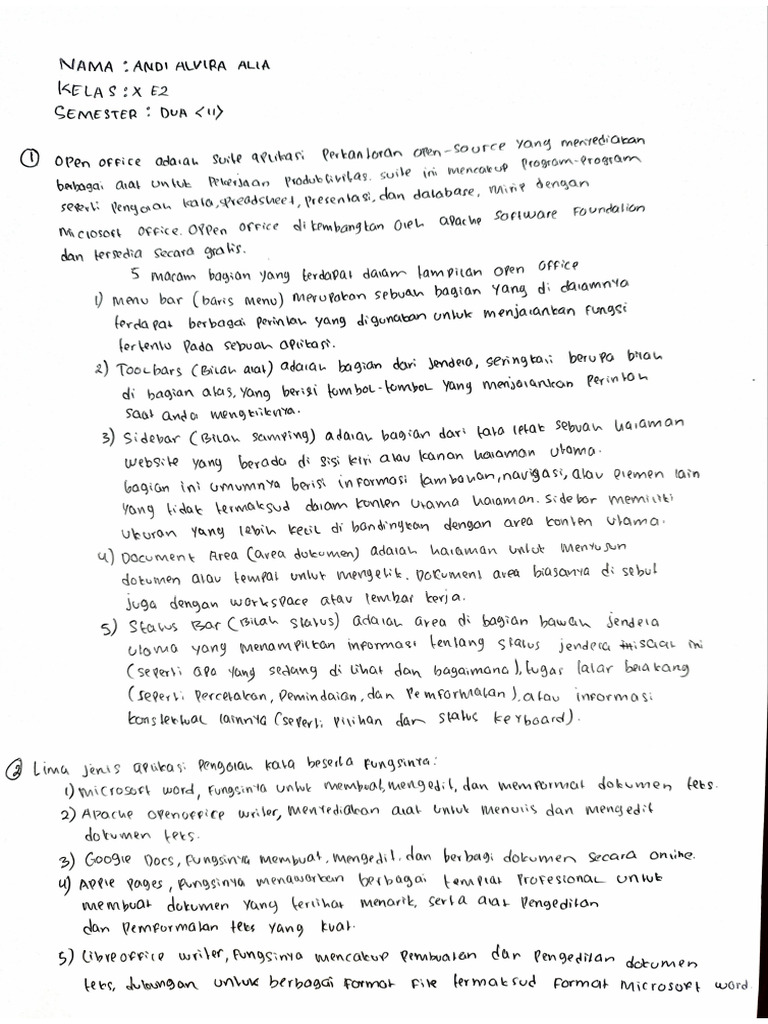 NAMA : ANDI ALVIRA ALIA
KELAS : X E2
SEMESTER : DUA <11>
① Open office adalah suite aplikasi Perkantoran open-source yang menyediakan
berbagai alat untuk Pekerjaan Produktivitas. suite ini mencakup Program-Program
seperti Pengolah kata, spreadsheet, presentasi, dan database, mirip dengan
Microsoft Office. Oppen office di kembangkan oleh apache software Foundation
dan tersedia secara gratis.
5 macam bagian yang terdapat dalam tampilan open office
1) Menu bar (baris menu) merupakan sebuah bagian yang di dalamnya
terdapat berbagai perintah yang digunakan untuk menjalankan fungsi
tertentu pada sebuah aplikasi.
2) Toolbars (Bilah alat) adalah bagian dari jendela, seringkali berupa bilah
di bagian atas, yang berisi tombol-tombol yang menjalankan perintah
saat anda mengkliknya.
3) Sidebar (Bilah samping) adalah bagian dari tata letak sebuah halaman
website yang berada di sisi kiri atau kanan halaman utama.
bagian ini umumnya berisi informasi tambahan, navigasi, atau elemen lain
yang tidak termaksud dalam konten utama halaman. sidebar memiliki
ukuran yang lebih kecil di bandingkan dengan area konten utama.
4) Document Area (area dokumen) adalah halaman untuk menyusun
dokumen atau tempat untuk mengetik. Dokument area biasanya di sebut
juga dengan workspace atau lembar kerja.
5) Status Bar (Bilah status) adalah area di bagian bawah jendela
utama yang menampilkan informasi tentang status jendela saat ini
(seperti apa yang sedang di lihat dan bagaimana), tugas latar belakang
(seperti percetakan, pemindaian, dan pemformatan), atau informasi
kontekstual lainnya (seperti pilihan dan status keyboard).
② Lima jenis aplikasi Pengolah kata beserta fungsinya:
1) Microsoft word, fungsinya untuk membuat, mengedit, dan memformat dokumen teks.
2) Apache openoffice writer, menyediakan alat untuk menulis dan mengedit
dokumen teks.
3) Google Docs, fungsinya membuat, mengedit, dan berbagi dokumen secara online.
4) Apple pages, fungsinya menawarkan berbagai templat profesional untuk
membuat dokumen yang terlihat menarik, serta alat pengeditan
dan pemformatan teks yang kuat.
5) Libreoffice writer, fungsinya mencakup pembuatan dan pengeditan dokumen
teks, dukungan untuk berbagai format file termaksud format Microsoft word.